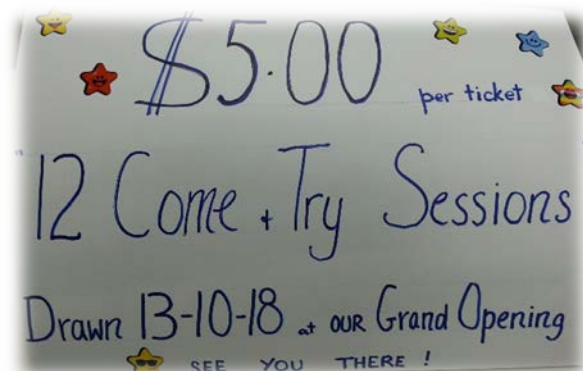 $5.00 per ticket
12 Come + Try Sessions
Drawn 13-10-18 at OUR Grand Opening
SEE YOU THERE !